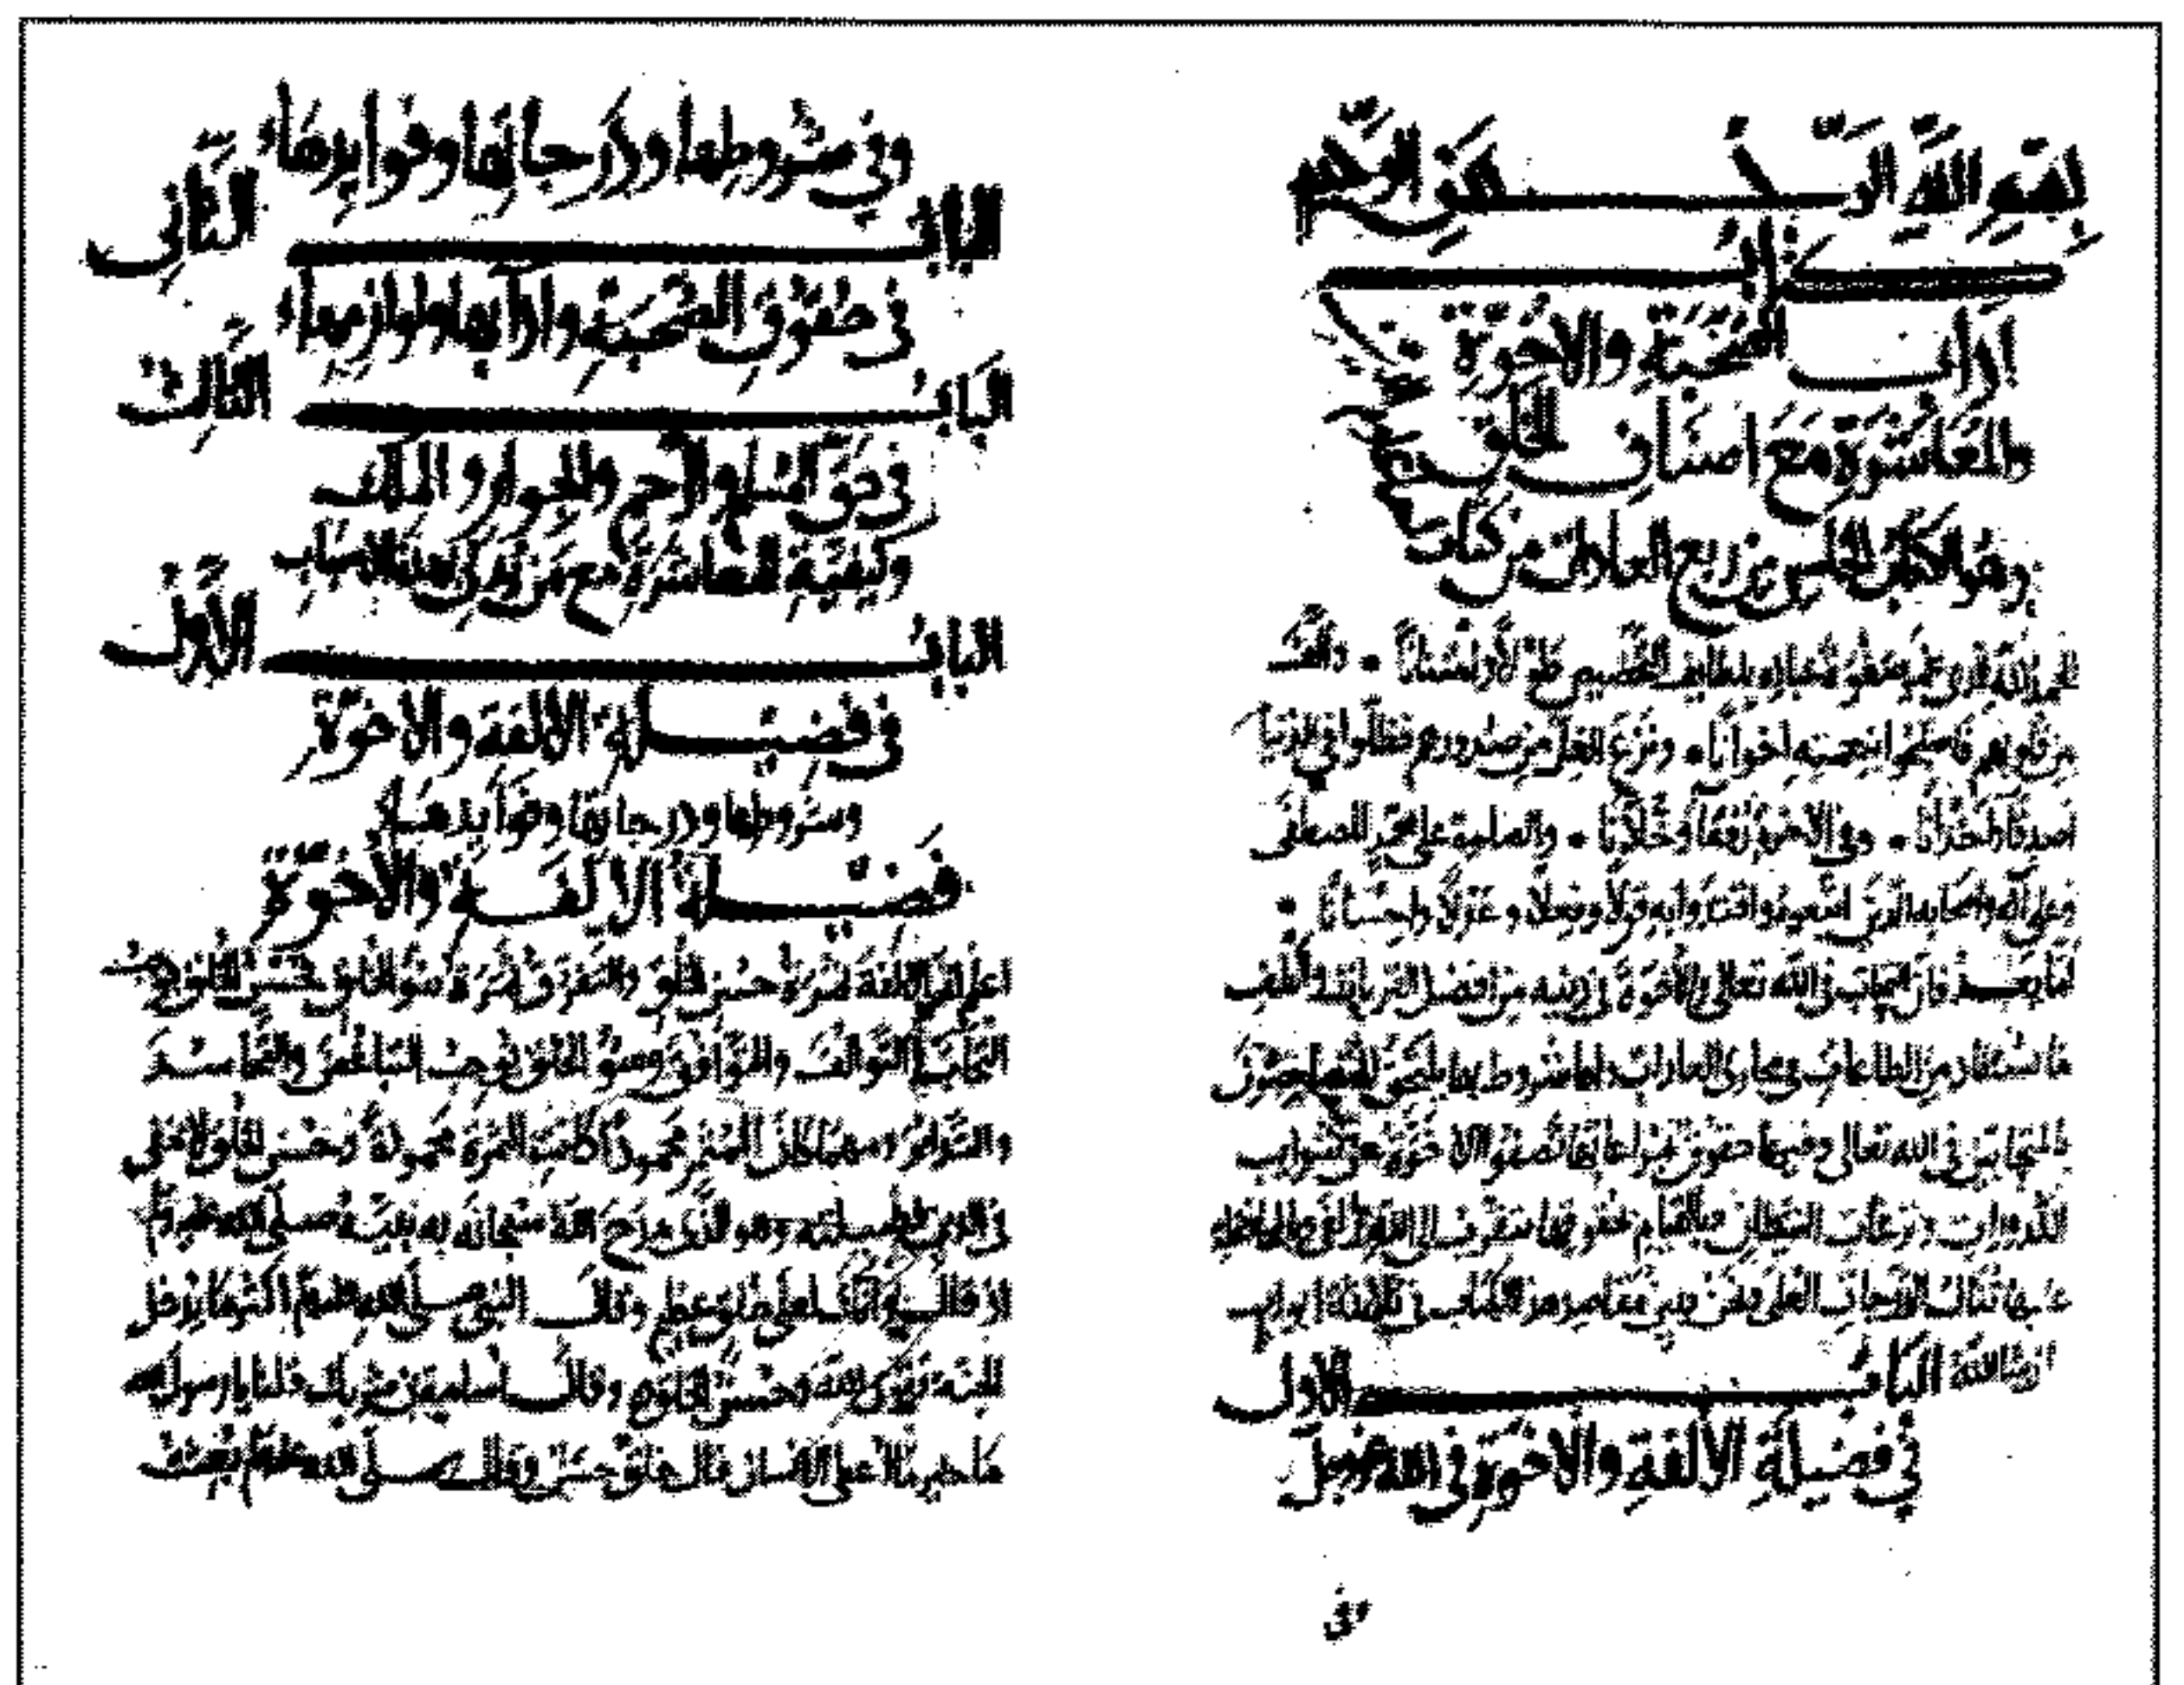 بسم الله الرحمن الرحيم
كتاب
آداب الصحبة والاخوة
والمعاشرة مع اصناف الخلق
وهو الكتاب الخامس من ربع العادات من كتاب
الحمد لله الذي غمر صفوة عباده بلطايف التخصيص طولا وامتنانا • والف
بين قلوبهم فاصبحوا بنعمته اخوانا • ونزع الغل من صدورهم فظلوا في الدنيا
اصدقا واخدانا • وفي الآخرة رفقا وخلانا • والصلوة على محمد المصطفى
وعلى آله واصحابه الذين اتبعوه واقتدوا به قولا وفعلا وعدلا واحسانا •
اما بعد فان التحاب في الله تعالى والاخوة في دينه من افضل القربات والطف
ما يستفاد من الطاعات في مجاري العادات ولها شروط بها يلتحق المتصاحبون
بالمتحابين في الله تعالى وفيها حقوق بمراعاتها تصفو الاخوة عن شوايب
الكدورات ونزغات الشيطان فبالقيام بحقوقها يتقرب الى الله زلفى وبالمحافظة
عليها تنال الدرجات العلى ونحن نبين مقاصد هذا الكتاب في ثلاثة ابواب
ان شا الله الباب الاول
في فضيلة الالفة والاخوة في الله عز وجل
وفي
وفي شروطها ودرجاتها وفوايدها
الباب الثاني
في حقوق الصحبة وآدابها ولوازمها
الباب الثالث
في حق المسلم والرحم والجوار والملك
وكيفية المعاشرة مع من يدلي بهذه الاسباب
الباب الاول
في فضيلة الالفة والاخوة
وشروطها ودرجاتها وفوايدها
فضيلة الالفة والاخوة
اعلم ان الالفة ثمرة حسن الخلق والتفرق ثمرة سوء الخلق فحسن الخلق يوجب
التحاب والتوالف والتوافق وسوء الخلق يوجب التباغض والتحاسد
والتدابر ومهما كان المثمر محمودا كانت الثمرة محمودة وحسن الخلق لا تخفى
في الدين فضيلته وهو الذي مدح الله سبحانه به نبيه صلى الله عليه وسلم
اذ قال وانك لعلى خلق عظيم وقال النبي صلى الله عليه وسلم اكثر ما يدخل
الجنة تقوى الله وحسن الخلق وقال اسامة بن شريك قلنا يا رسول الله
ما خير ما اعطي الانسان قال خلق حسن وقال صلى الله عليه وسلم بعثت